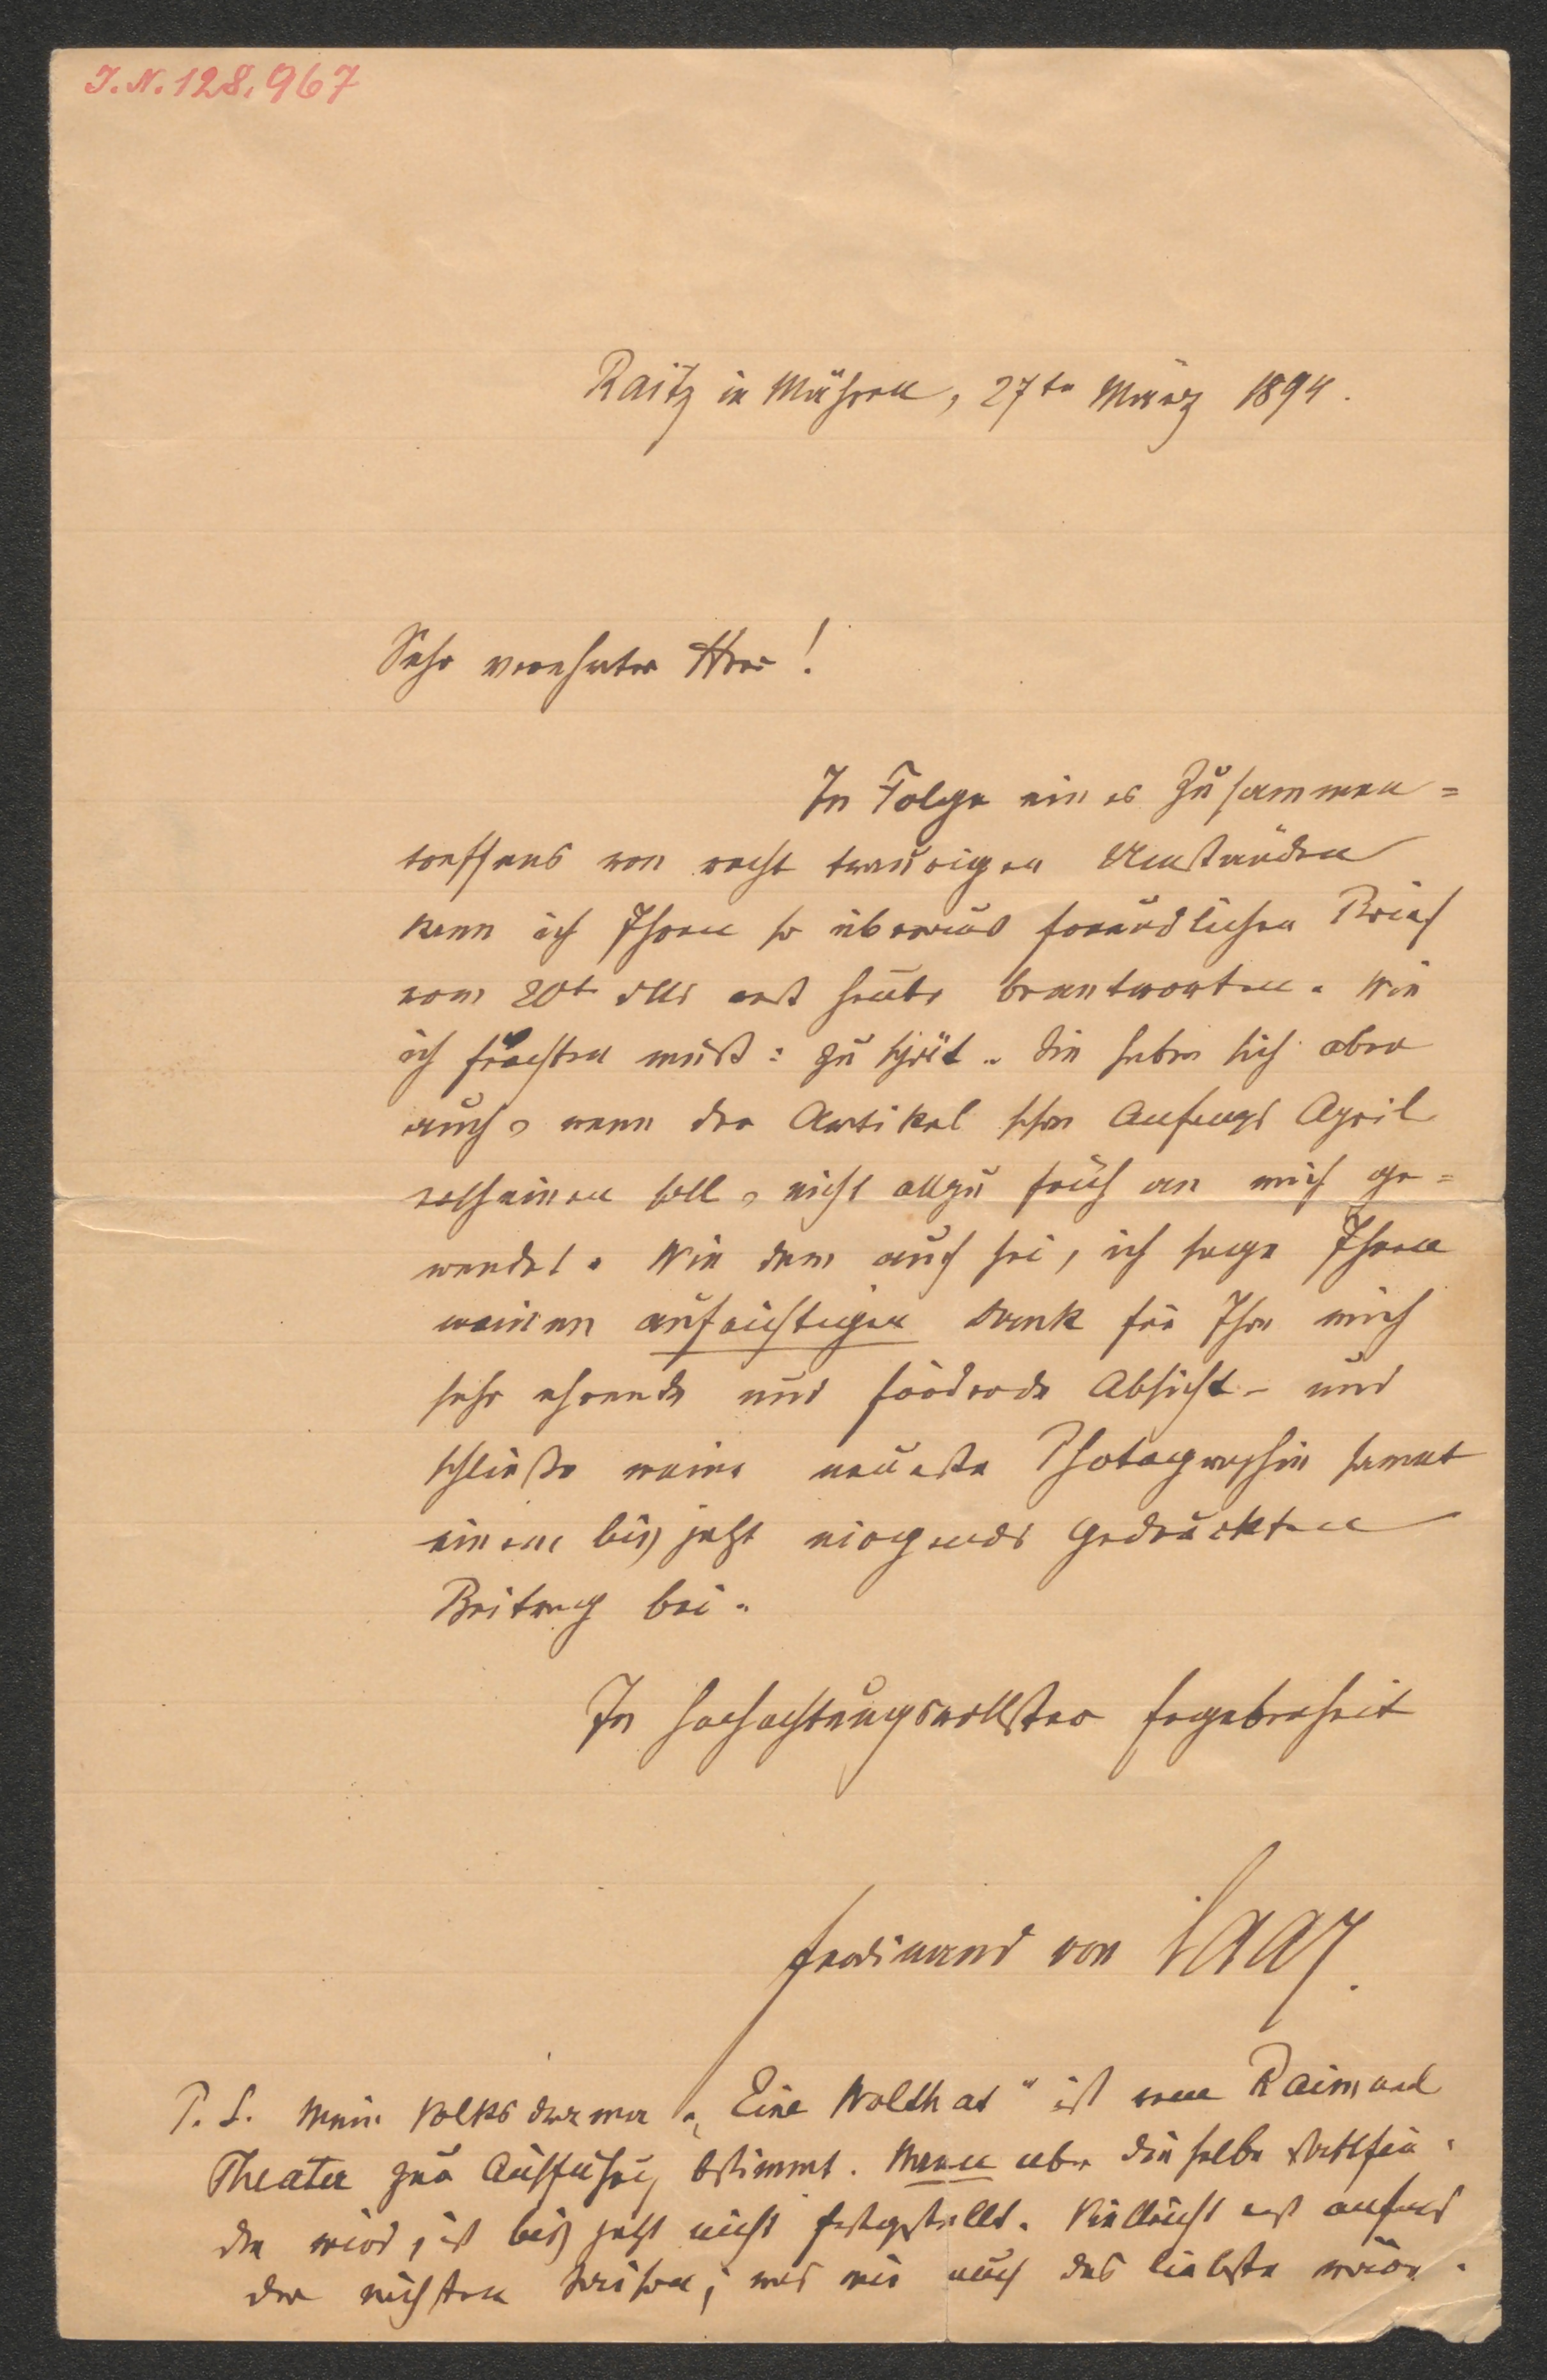 I. N. 128.967
Raitz in Mähren, 27te März 1894.
Sehr verehrter Herr!
In Folge eines Zusammen=
treffens von recht traurigen Umständen
kann ich Ihren so überaus freundlichen Brief
vom 20t erst heute beantworten. Wie
ich fürchten muß: zu spät. Sie haben sich aber
auch, wenn der Artikel schon Anfangs April
erscheinen soll, nicht allzu früh an mich ge=
wendet. Wie dem auch sei, ich sage Ihnen
meinen aufrichtigen Dank für Ihre mich
sehr ehrende und fördernde Absicht – und
schließe meine neueste Photographie sammt
einem bis jetzt nirgends gedruckten
Beitrag bei.
In hochachtungsvollster Ergebenheit
Ferdinand von Saar.
P. S. Mein Volksdrama „Eine Wolthat" ist vom Raimund
Theater zur Aufführung bestimmt. Wann aber dieselbe stattfin=
den wird, ist bis jetzt nicht festgestellt. Vielleicht erst anfangs
der nächsten Saison; was mir auch das liebste wäre.